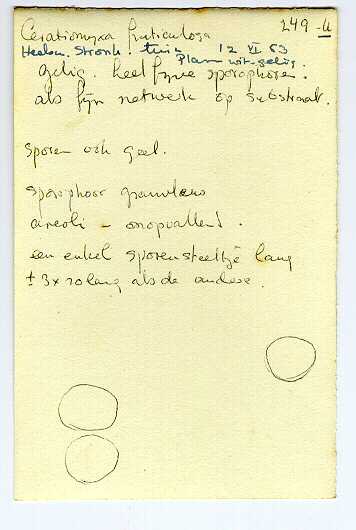 Ceratiomyxa fruticulosa 249-U
Heelsu. Stronk - tuin 12 VI 63
Plasm wit-gelig.
Gelig. heel fijne sporophoren.
als fijn netwerk op substraat.
sporen ook geel.
sporophoor granuleus
areoli - onopvallend.
een enkel sporensteeltje lang
± 3x zo lang als de andere.